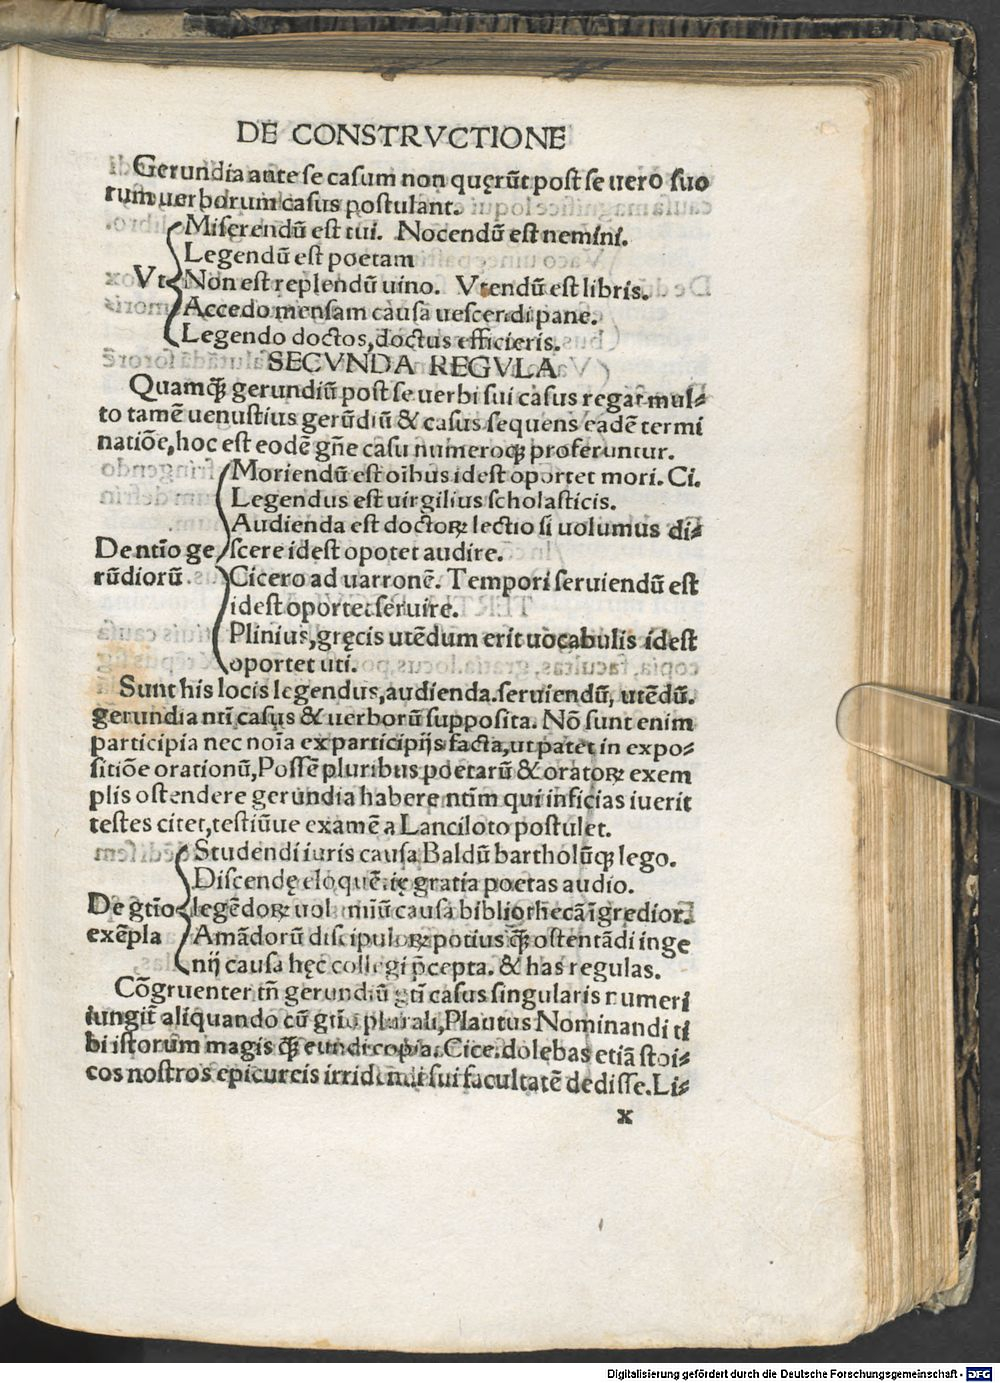 DE CONSTRVCTIONE
Gerundia ante se casum non quęrūt post se uero suo
rum uerborum casus postulant.
Miserendū est tui. Nocendū est nemini.
Legendū est poetam
Vt Non est replendū uino. Vtendū est libris.
Accedo mensam causa uescendi pane.
Legendo doctos, doctus efficieris.
SECVNDA REGVLA
Quamꝗ̄ gerundiū post se uerbi sui casus regat mul⸗
to tamē uenustius gerūdiū & casus sequens eadē termi
natiōe, hoc est eodē gn̄e casu numeroꝗ proferuntur.
Moriendū est oībus idest oportet mori. Ci.
Legendus est uirgilius scholasticis.
Audienda est doctoꝝ lectio si uolumus di⸗
De ntīo ge scere idest opotet audire.
rūdiorū Cicero ad uarronē. Tempori seruiendū est
idest oportet seruire.
Plinius, gręcis utēdum erit uocabulis idest
oportet uti.
Sunt his locis legendus, audienda. seruiendū, utēdū.
gerundia ntī casus & uerborū supposita. Nō sunt enim
participia nec noīa ex participijs facta, ut patet in expo⸗
sitiōe orationū, Possē pluribus poetarū & oratoꝝ exem
plis ostendere gerundia habere ntīm qui inficias iuerit
testes citet, testiūue examē a Lanciloto postulet.
Studendi iuris causa Baldū bartholūꝗ lego.
Discendę eloquētię gratia poetas audio.
De gtīo legēdoꝝ uoluminū causa bibliothecā īgredior.
exēpla Amādorū discipuloꝝ potius ꝗ̄ ostentādi inge
nij causa hęc collegi p̄cepta. & has regulas.
Cōgruenter tn̄ gerundiū gtī casus singularis numeri
iungit̄ aliquando cū gtīo plurali, Plautus Nominandi ti
bi istorum magis ꝗ̄ eundi copia. Cice. dolebas etiā stoi⸗
cos nostros epicureis irridendi sui facultatē dedisse. Li⸗
x
Digitalisierung gefördert durch die Deutsche Forschungsgemeinschaft - DFG